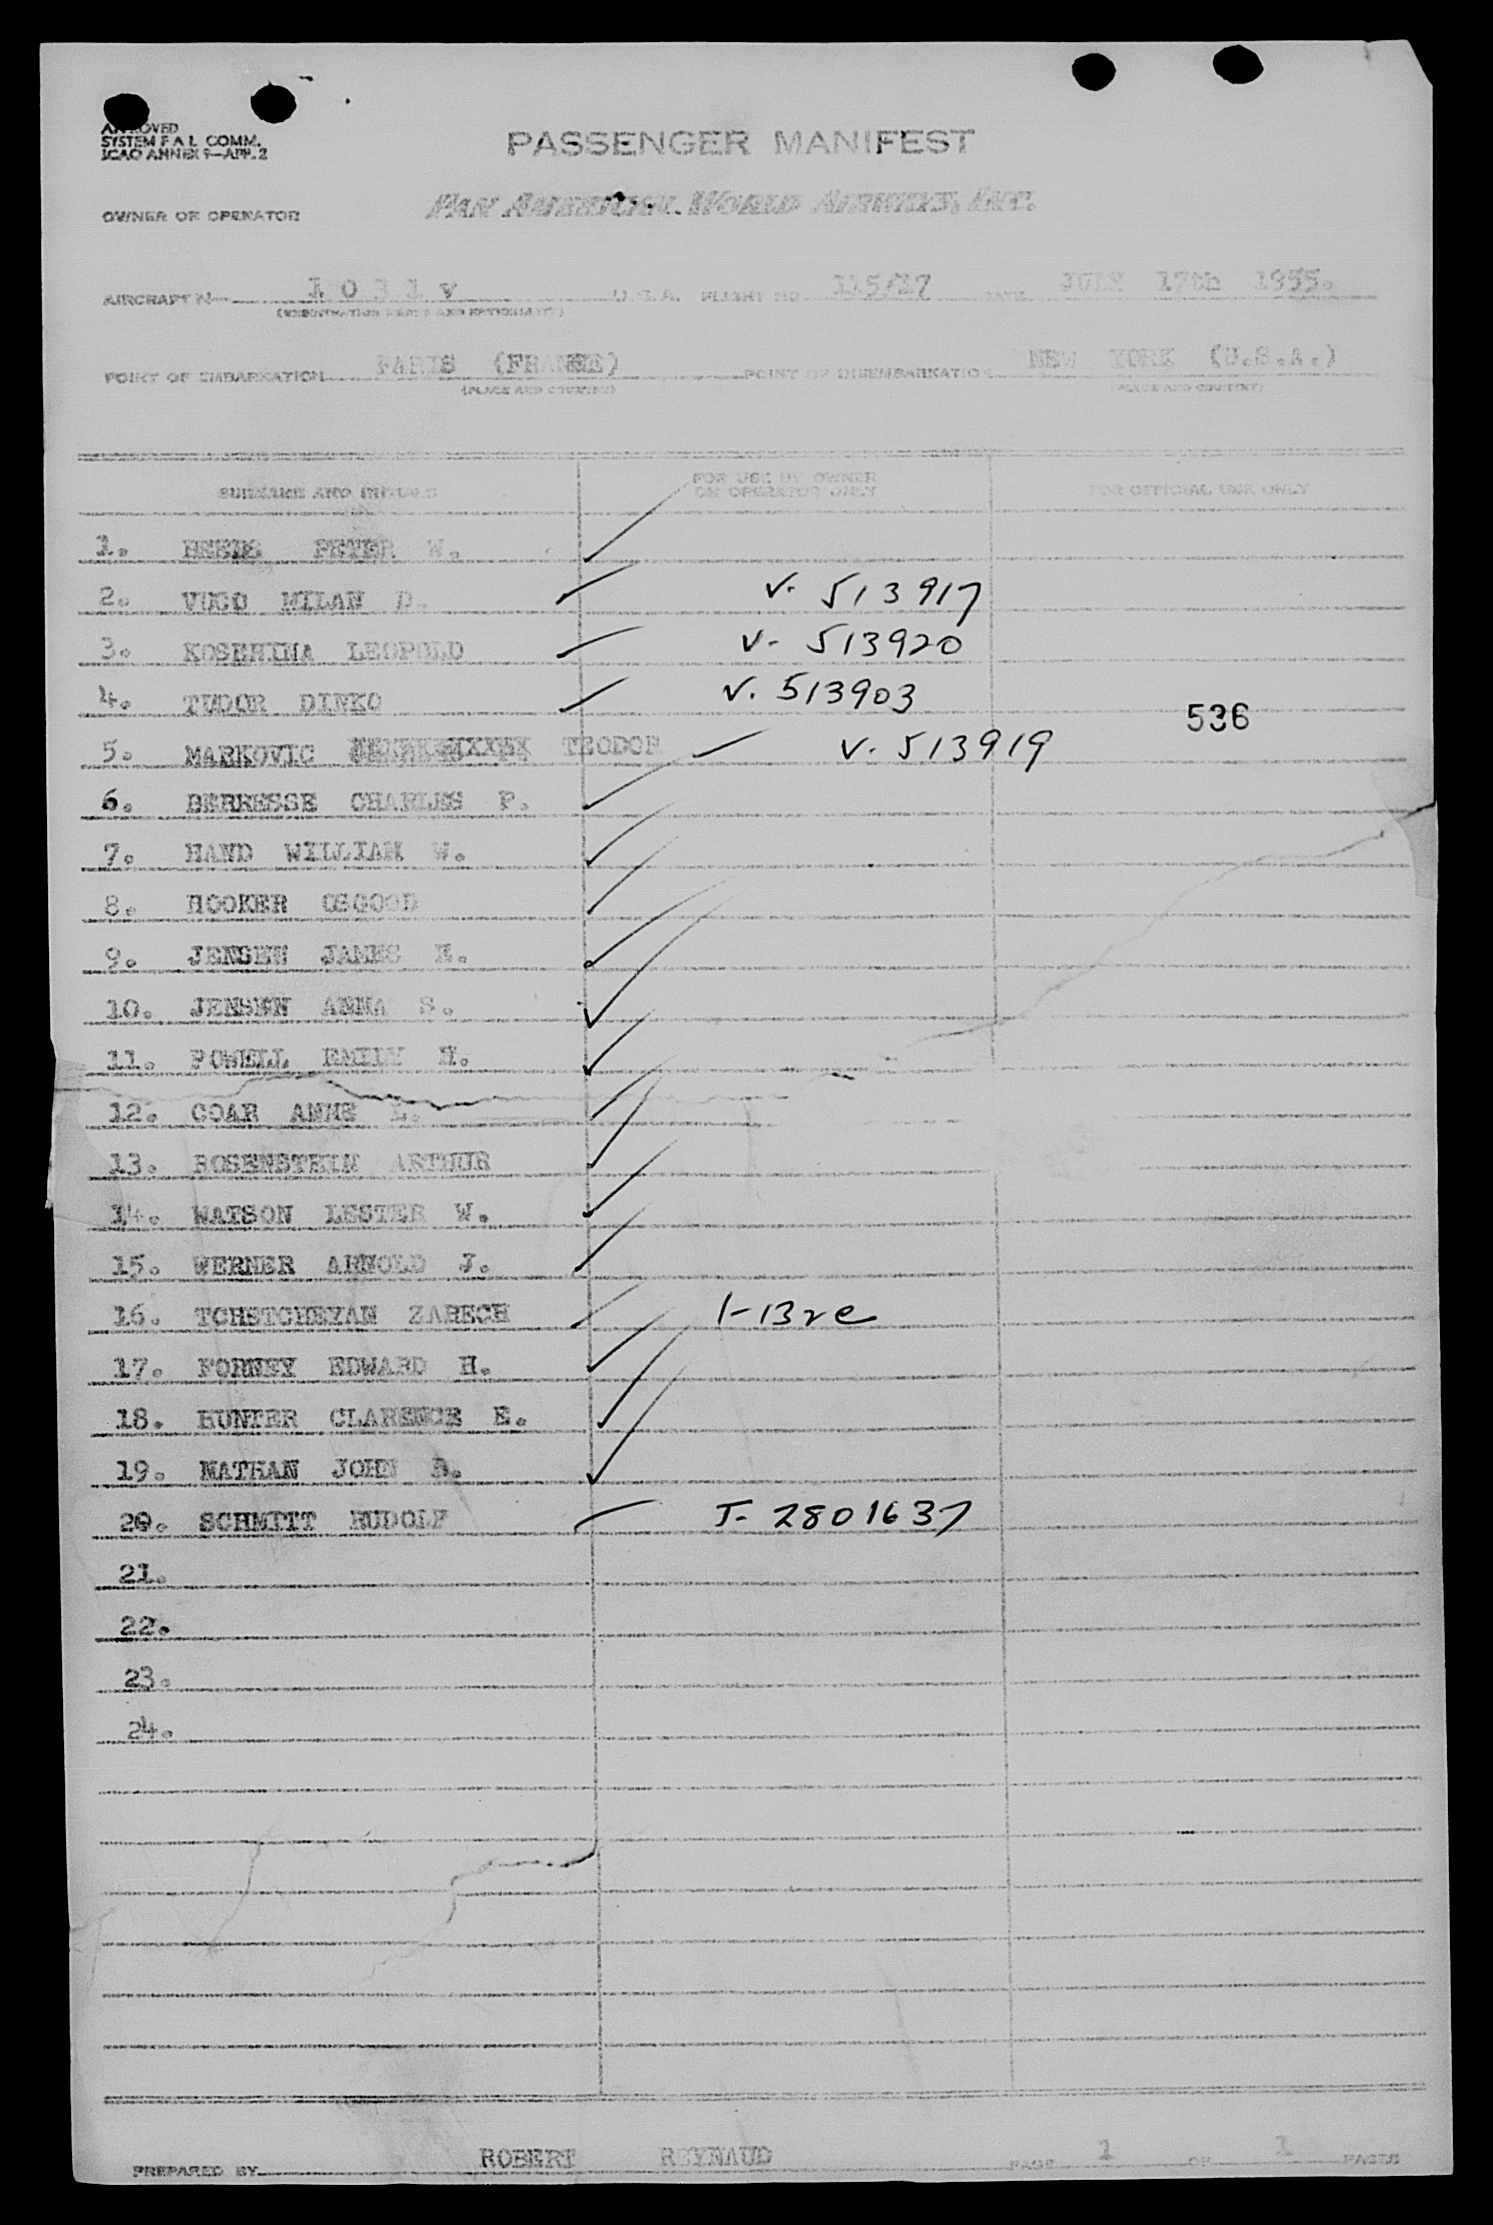 APPROVED
SYSTEM F A L COMM.
ICAO ANNEX 9—APP. 2
PASSENGER MANIFEST
OWNER OR OPERATOR
PAN AMERICAN WORLD AIRWAYS, INC.
AIRCRAFT N 1 0 3 1 V U.S.A. FLIGHT NO 115/17 DATE JULY 17th 1955.
(REGISTRATION MARKS AND NATIONALITY)
POINT OF EMBARKATION PARIS (FRANCE) POINT OF DISEMBARKATION NEW YORK (U.S.A.)
(PLACE AND COUNTRY) (PLACE AND COUNTRY)
SURNAME AND INITIALS FOR USE BY OWNER OR OPERATOR ONLY FOR OFFICIAL USE ONLY
1. PETER W.
2. VUCO MILAN D. V. 513917
3. LEOPOLD V- 513920
4. TUDOR DINKO V. 513903
536
5. MARKOVIC TEODOR V. 513919
6. BERRESSE CHARLES P.
7. HAND WILLIAM W.
8. HOOKER OSGOOD
9. JENSEN JAMES H.
10. JENSEN ANNA S.
11. POWELL EMILY H.
12. COAR ANNE L.
13. ROSENSTEIN ARTHUR
14. WATSON LESTER W.
15. WERNER ARNOLD J.
16. TCHETCHEYAN ZARECH 1-132e
17. FORNEY EDWARD H.
18. HUNTER CLARENCE E.
19. NATHAN JOHN B.
20. SCHMITT RUDOLF J- 2801637
21.
22.
23.
24.
PREPARED BY ROBERT REYNAUD PAGE 1 OF 1 PAGES